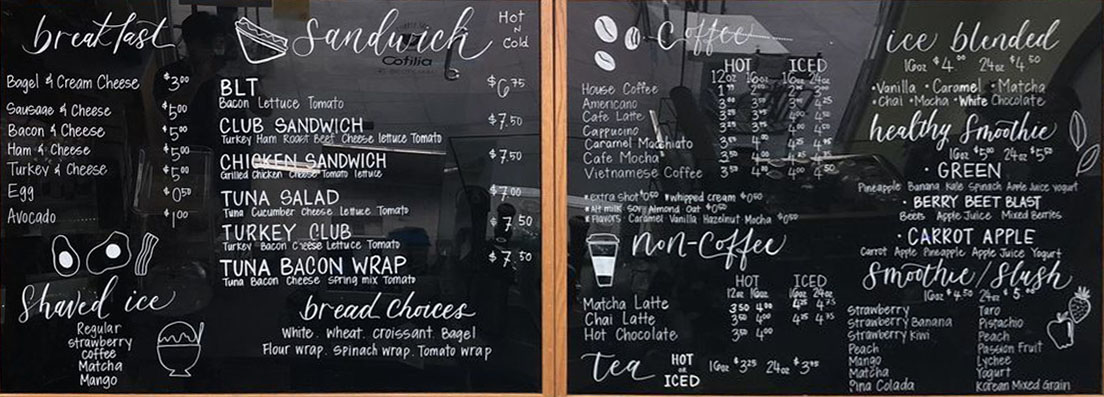 breakfast
Bagel & Cream Cheese $3.00
Sausage & Cheese $5.00
Bacon & Cheese $5.00
Ham & Cheese $5.00
Turkey & Cheese $5.00
Egg $0.50
Avocado $1.00
Shaved ice
Regular
Strawberry
Coffee
Matcha
Mango
Sandwich
Hot
N
Cold
Cofilia
BLT $6.75
Bacon Lettuce Tomato
CLUB SANDWICH $7.50
Turkey Ham Roast Beef Cheese lettuce Tomato
CHICKEN SANDWICH $7.50
Grilled Chicken Cheese Tomato lettuce
TUNA SALAD $7.00
Tuna Cucumber Cheese Lettuce Tomato
TURKEY CLUB $7.50
Turkey Bacon Cheese Lettuce Tomato
TUNA BACON WRAP $7.50
Tuna Bacon Cheese Spring mix Tomato
bread choices
White. Wheat. Croissant. Bagel
Flour wrap. Spinach wrap. Tomato wrap
Coffee
HOT ICED
12oz 16oz 16oz 24oz
House Coffee
Americano
Cafe Latte
Cappucino
Caramel Macchiato
Cafe Mocha
Vietnamese Coffee
extra shot $0.50 whipped cream $0.50
Alt milk Soy Almond Oat $0.50
Flavors Caramel Vanilla Hazelnut Mocha $0.50
non-Coffee
HOT ICED
12oz 16oz 16oz 24oz
Matcha Latte 3.50 4.00 4.25 4.75
Chai Latte 3.50 4.00 4.25 4.75
Hot Chocolate 3.50 4.00
tea HOT or ICED 16oz $3.25 24oz $3.75
ice blended
16oz $4.00 24oz $4.50
•Vanilla •Caramel •Matcha
•Chai •Mocha •White Chocolate
healthy Smoothie
16oz $5.00 24oz $5.50
• GREEN
Pineapple Banana Kale Spinach Apple Juice yogurt
• BERRY BEET BLAST
Beets Apple Juice Mixed Berries
• CARROT APPLE
Carrot Apple Pineapple Apple Juice Yogurt
Smoothie/Slush
16oz $4.50 24oz $5.00
Strawberry Taro
Strawberry Banana Pistachio
Strawberry Kiwi Peach
Peach Passion Fruit
Mango Lychee
Matcha Yogurt
Pina Colada Korean Mixed Grain